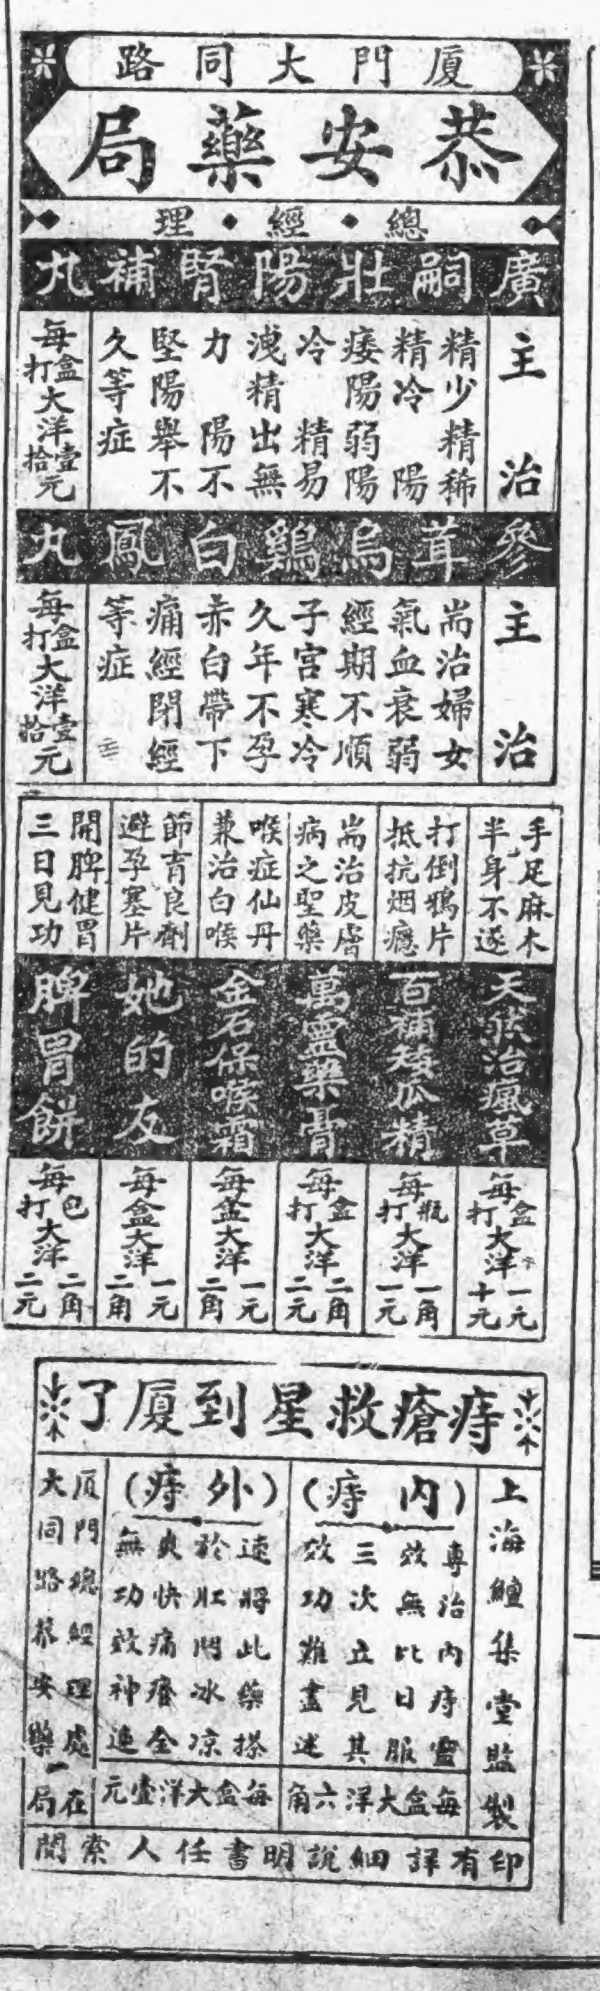 廈門大同路
恭安藥局
總經理
廣嗣壯陽腎補丸
主治
精少精稀
精冷陽
痿陽弱陽
冷精易
洩精出無
力陽不
堅陽舉不
久等症
每盒大洋壹元
打拾
參茸烏鷄白鳳丸
主治
耑治婦女
氣血衰弱
經期不順
子宮寒冷
久年不孕
赤白帶下
痛經閉經
等症
每盒大洋壹元
打拾
手足麻木
半身不遂
天然治瘋草
每盒大洋一元
打十元
打倒鴉片
抵抗烟癮
百補矮瓜精
每瓶大洋一角
打一元
耑治皮膚
病之聖藥
萬靈藥膏
每盒大洋二角
打二元
喉症仙丹
兼治白喉
金石保喉霜
每盒大洋一元
二角
節育良劑
避孕塞片
她的友
每盒大洋一元
二角
開脾健胃
三日見功
脾胃餅
每包大洋二角
打二元
痔瘡救星到廈了
上海 集堂監製
(內痔)
專治內痔靈
效無比日服
三次立見其
效功難盡述
每盒大洋六角
(外痔)
速將此藥搽
於肛門冰凉
爽快痛癢全
無功效神速
每盒大洋壹元
厦門總經理處在
大同路恭安藥局
印有詳細說明書任人索閱